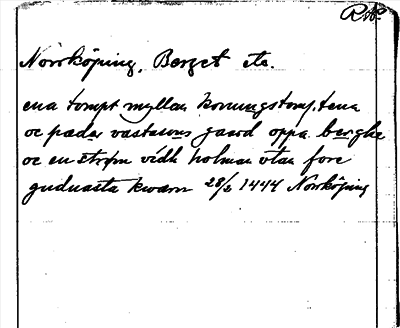 RAp.
Norrköping. Berget etc.
ena tompt myllan konungstomptena
oc pædar vastasons gaard oppa berghe
oc en strøm vidh holman vtan fore
gudnasta kwarn 28/2 1444 Norrköping